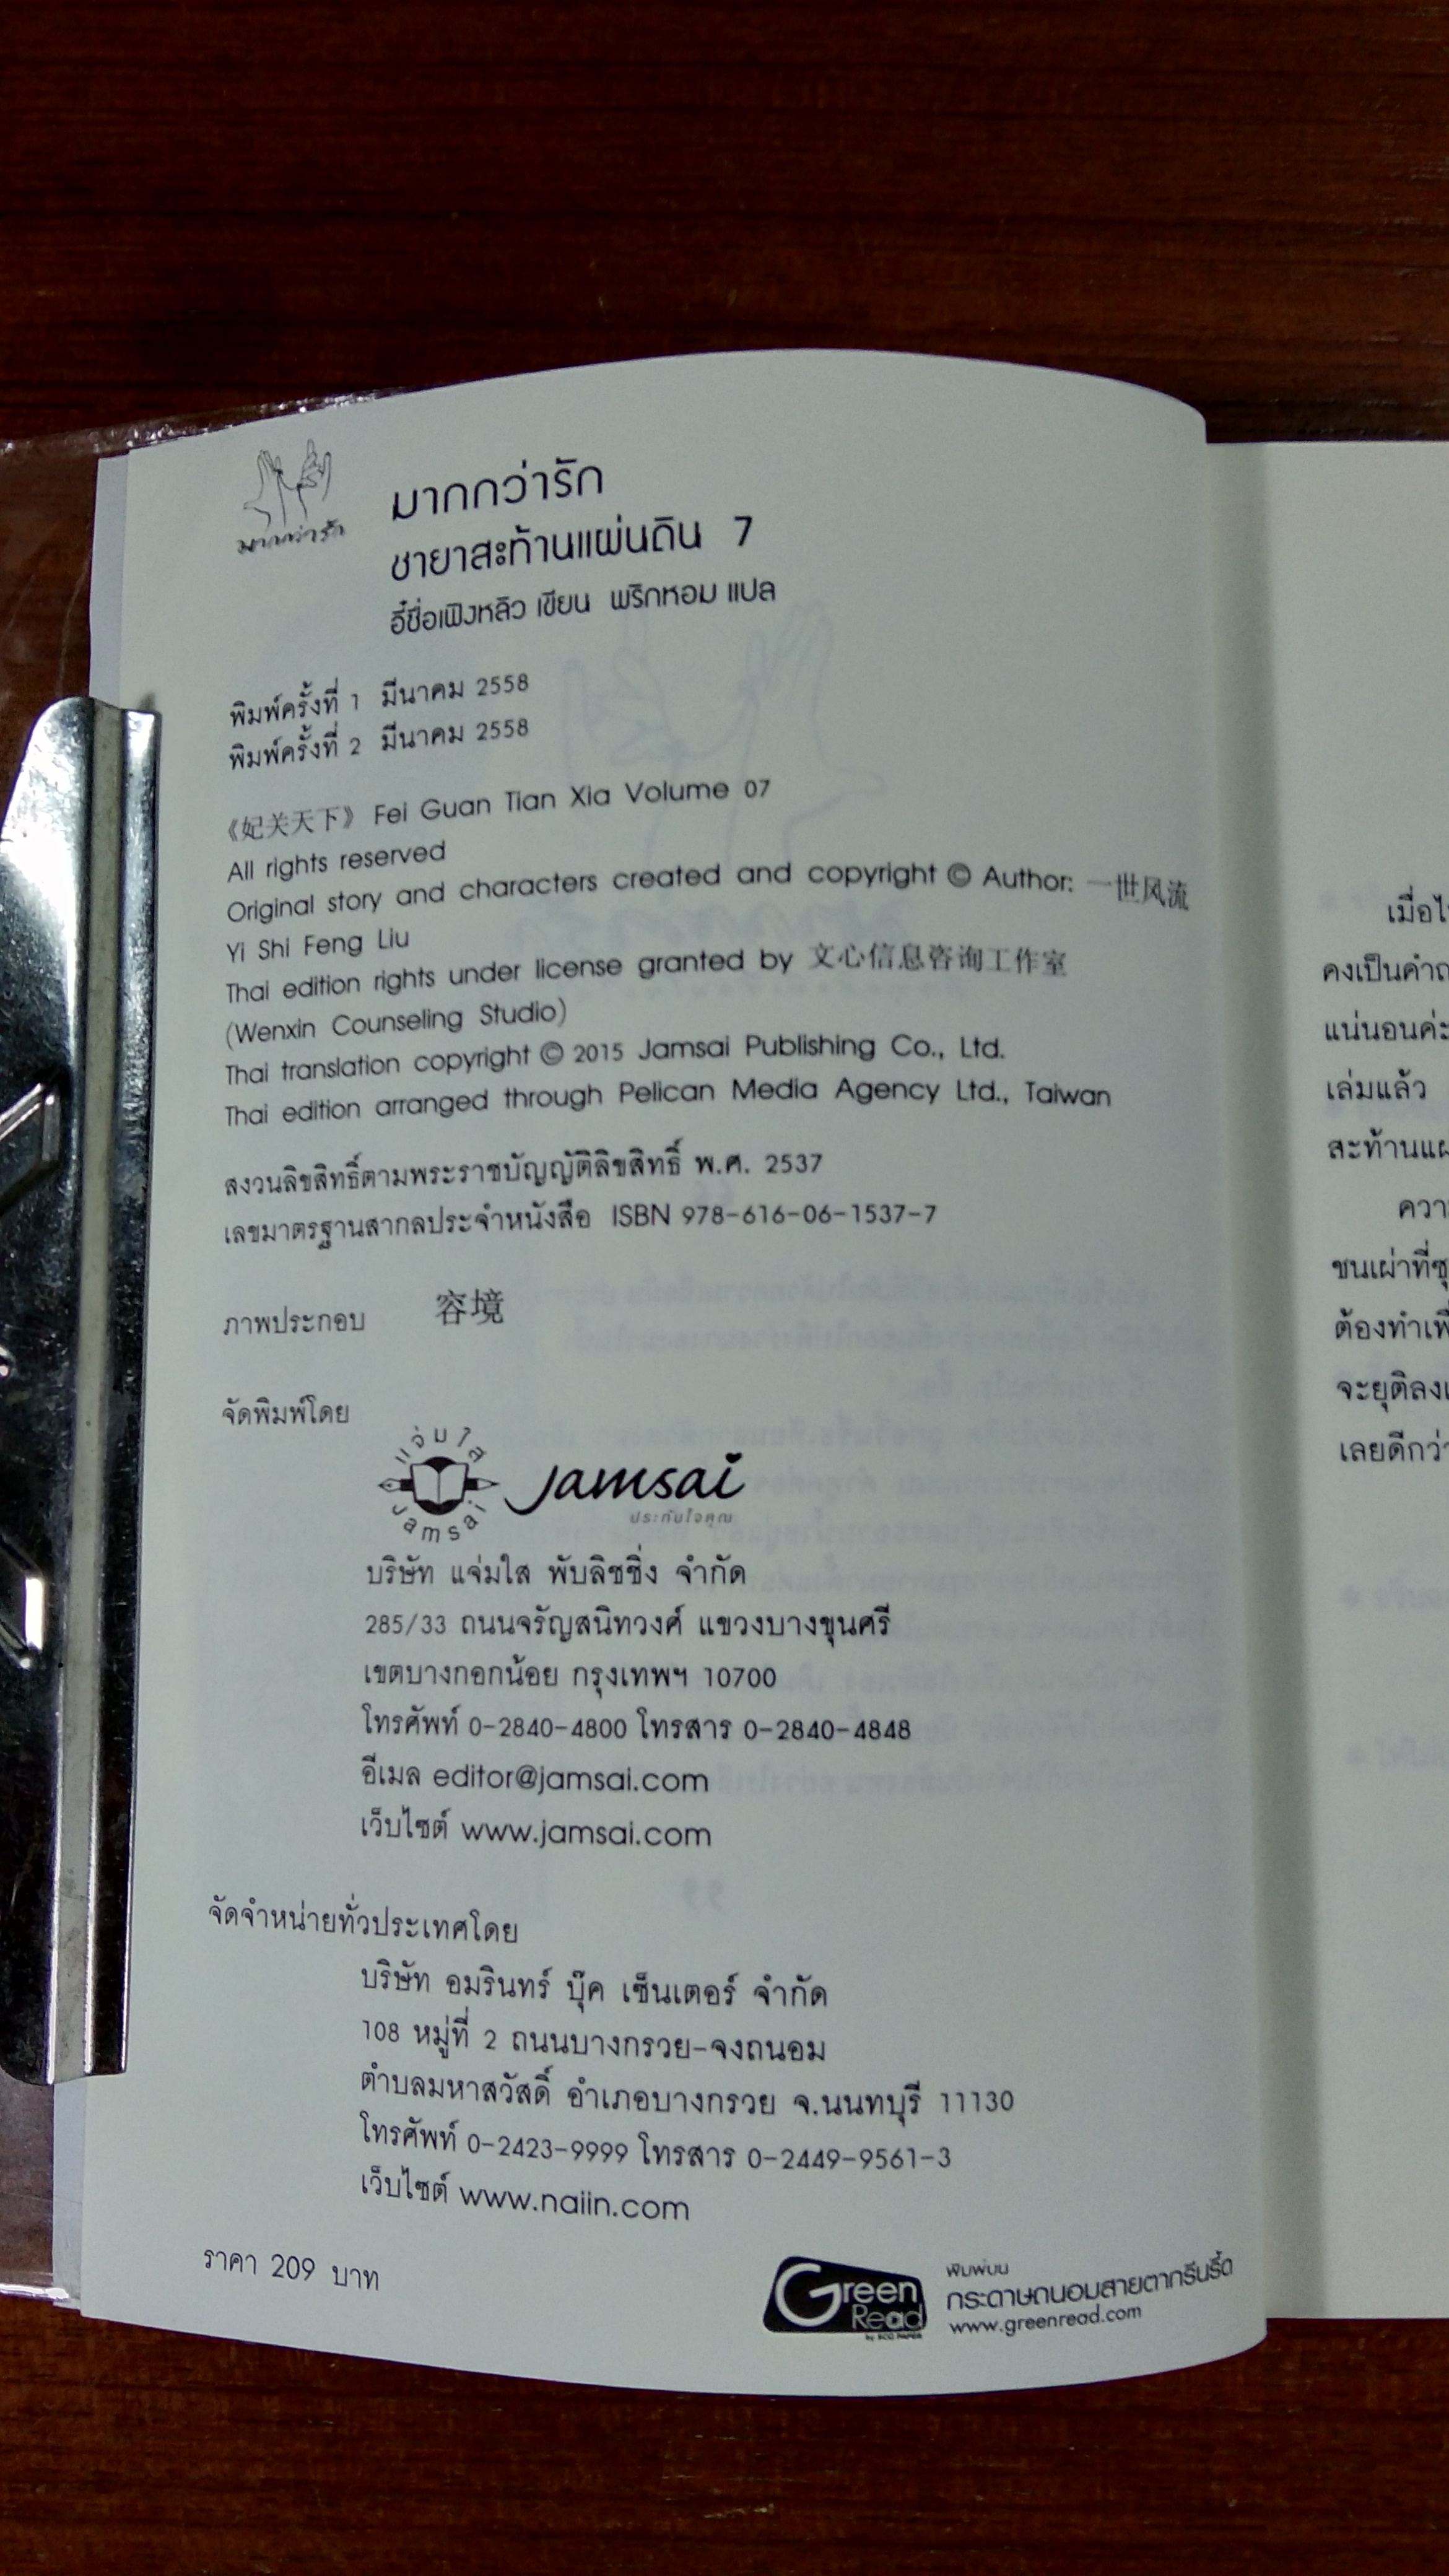 มากกว่ารัก
มากกว่ารัก
ชายาสะท้านแผ่นดิน 7
อี๋ซื่อเฟิงหลิว เขียน พริกหอม แปล
พิมพ์ครั้งที่ 1 มีนาคม 2558
พิมพ์ครั้งที่ 2 มีนาคม 2558
《妃关天下》 Fei Guan Tian Xia Volume 07
All rights reserved
Original story and characters created and copyright © Author: 一世风流
Yi Shi Feng Liu
Thai edition rights under license granted by 文心信息咨询工作室
(Wenxin Counseling Studio)
Thai translation copyright © 2015 Jamsai Publishing Co., Ltd.
Thai edition arranged through Pelican Media Agency Ltd., Taiwan
สงวนลิขสิทธิ์ตามพระราชบัญญัติลิขสิทธิ์ พ.ศ. 2537
เลขมาตรฐานสากลประจำหนังสือ ISBN 978-616-06-1537-7
ภาพประกอบ 容境
จัดพิมพ์โดย
แจ่มใส
Jamsai
Jamsai
ประทับใจคุณ
บริษัท แจ่มใส พับลิชชิ่ง จำกัด
285/33 ถนนจรัญสนิทวงศ์ แขวงบางขุนศรี
เขตบางกอกน้อย กรุงเทพฯ 10700
โทรศัพท์ 0-2840-4800 โทรสาร 0-2840-4848
อีเมล editor@jamsai.com
เว็บไซต์ www.jamsai.com
จัดจำหน่ายทั่วประเทศโดย
บริษัท อมรินทร์ บุ๊ค เซ็นเตอร์ จำกัด
108 หมู่ที่ 2 ถนนบางกรวย-จงถนอม
ตำบลมหาสวัสดิ์ อำเภอบางกรวย จ.นนทบุรี 11130
โทรศัพท์ 0-2423-9999 โทรสาร 0-2449-9561-3
เว็บไซต์ www.naiin.com
ราคา 209 บาท
Green
Read
by SCG PAPER
พิมพ์บน
กระดาษถนอมสายตากรีนรี้ด
www.greenread.com
เมื่อ
แน่นอนค่ะ
เล่มแล้ว
ชนเผ่าที่
จะยุติลง
เลยดีกว่า